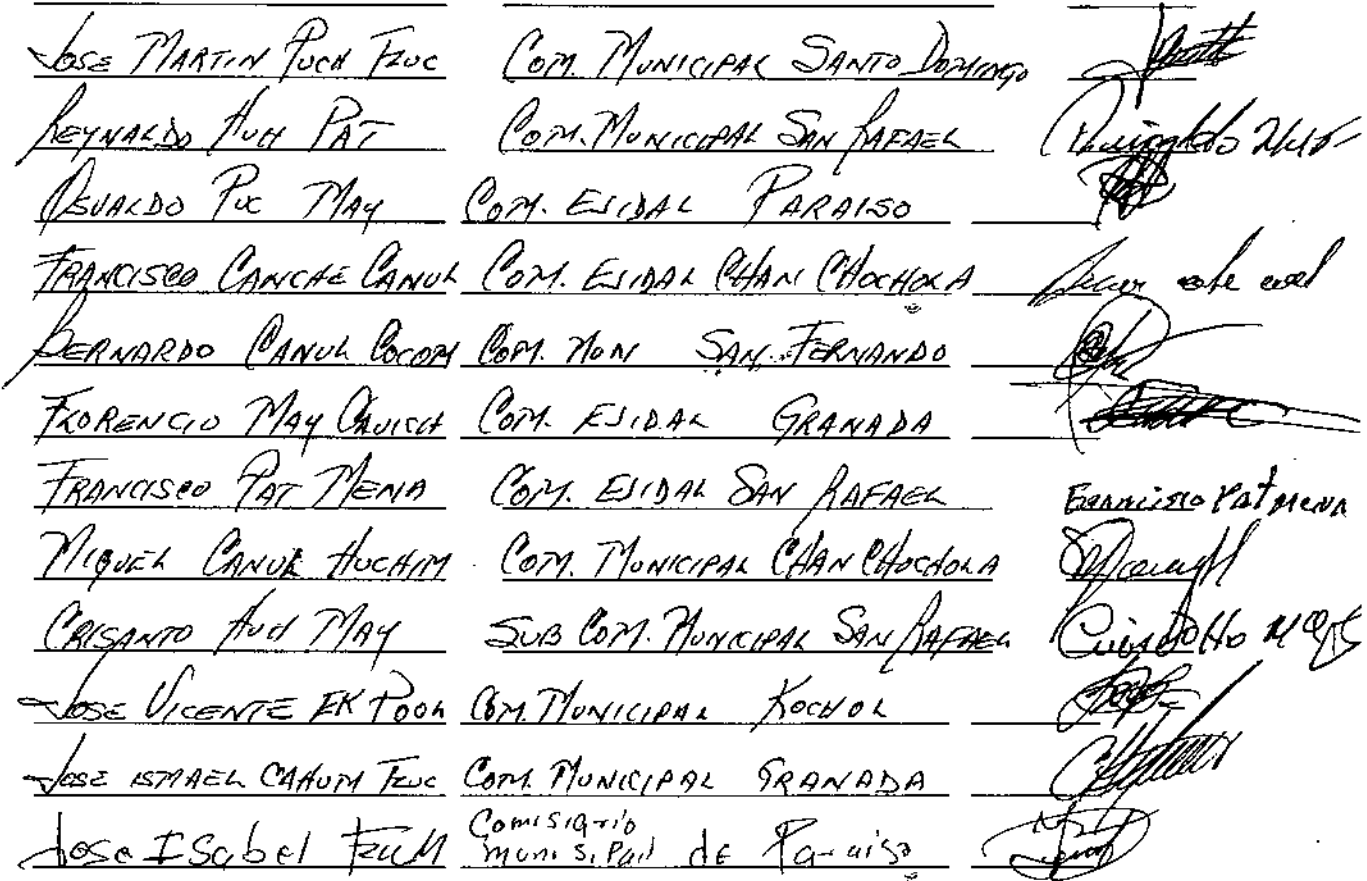 JOSE MARTIN PUCH TZUC COM. MUNICIPAL SANTO DOMINGO
REYNALDO HUH PAT COM. MUNICIPAL SAN RAFAEL
OSVALDO PUC MAY COM. EJIDAL PARAISO
FRANCISCO CANCHE CANUL COM. EJIDAL CHAN CHOCHOLA
BERNARDO CANUL COCOM COM. MON SAN FERNANDO
FLORENCIO MAY CAUICH COM. EJIDAL GRANADA
FRANCISCO PAT MENA COM. EJIDAL SAN RAFAEL Francisco Pat Mena
MIGUEL CANUL HUCHIM COM. MUNICIPAL CHAN CHOCHOLA
CRISANTO HUH MAY SUB COM. MUNICIPAL SAN RAFAEL
JOSE VICENTE EK POOL COM. MUNICIPAL KOCHOL
JOSE ISMAEL CAHUM TZUC COM. MUNICIPAL GRANADA
Jose ISabel Comisario
munisipal de Paraiso